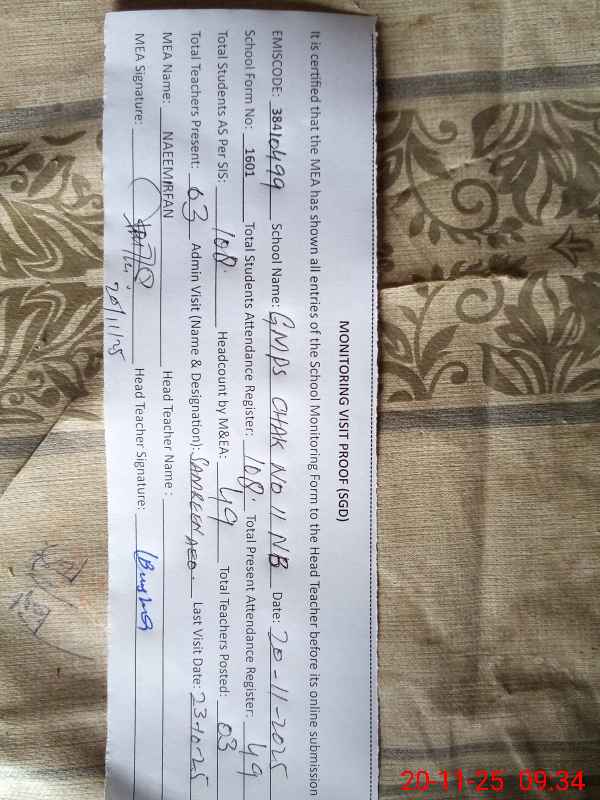 MONITORING VISIT PROOF (SGD)
It is certified that the MEA has shown all entries of the School Monitoring Form to the Head Teacher before its online submission
EMISCODE: 38410499 School Name: GMPS CHAK NO 11 NB Date: 20-11-2025
School Form No: 1601 Total Students Attendance Register: 108 Total Present Attendance Register: 49
Total Students AS Per SIS: 108 Headcount by M&EA: 49 Total Teachers Posted: 03
Total Teachers Present: 03 Admin Visit (Name & Designation): SAMREEN AEO. Last Visit Date: 23-10-25
MEA Name: NAEEM IRFAN Head Teacher Name :
MEA Signature: Head Teacher Signature:
20/11/25
20-11-25 09:34